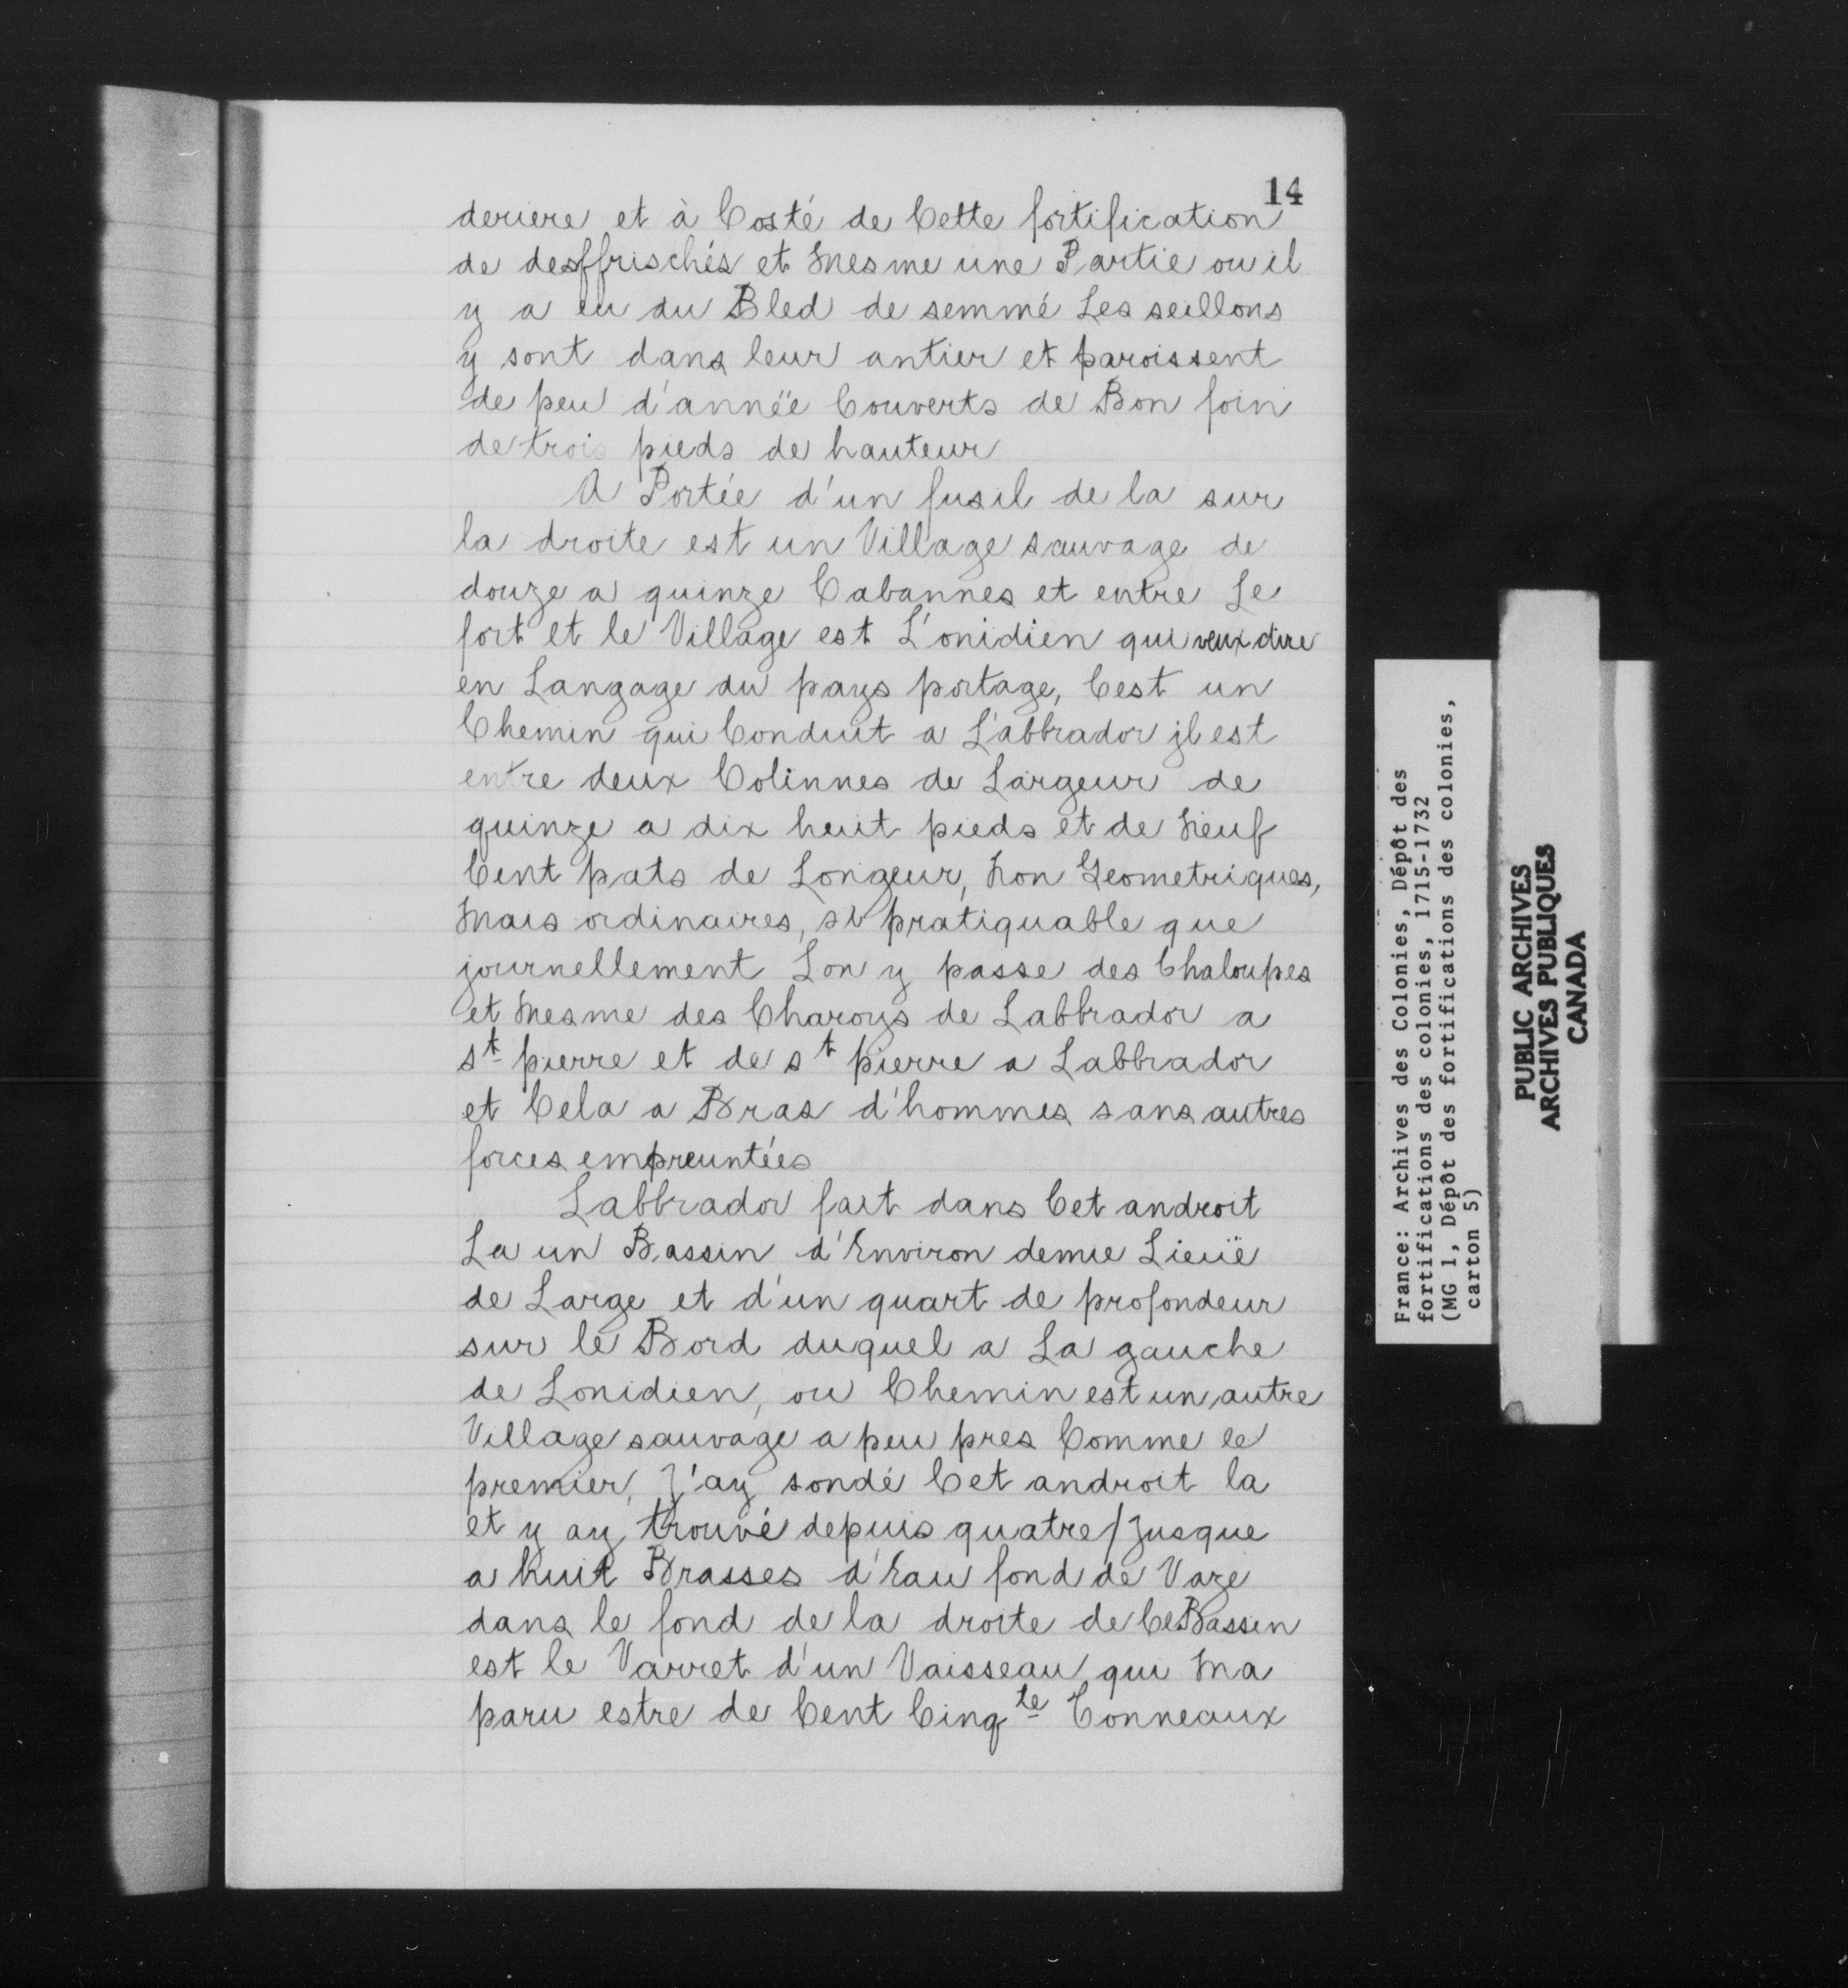 14
deriere et à Costé de Cette fortification
de desffrischés et Mesme une Partie ou il
y a eu du Bled de semmé Les seillons
y sont dans leur antier et paroissent
de peu d'annéë Couverts de Bon foin
de trois pieds de hauteur
A Portée d'un fusil de la sur
la droite est un Village sauvage de
douze a quinze Cabannes et entre Le
fort et le Village est L'onidien qui veux dire
en Langage du pays portage, Cest un
Chemin qui Conduit a L'abbrador jl est
entre deux Colinnes de Largeur de
quinze a dix huit pieds et de Neuf
Cent pats de Longeur, Non Geometriques,
Mais ordinaires, si pratiquable que
journellement Lon y passe des Chaloupes
et Mesme des Charoys de Labbrador a
st pierre et de st pierre a Labbrador
et Cela a Bras d'hommes sans autres
forces empreuntées
Labbrador fait dans Cet androit
La un Bassin d'Environ demie Lieuë
de Large et d'un quart de profondeur
sur le Bord duquel a La gauche
de Lonidien, ou Chemin est un autre
Village sauvage a peu pres Comme le
premier, J'ay sondé Cet androit la
et y ay trouvé depuis quatre/Jusque
a huit Brasses d'Eau fond de Vaze
dans le fond de la droite de Ce Bassin
est le Varret d'un Vaisseau qui Ma
paru estre de Cent Cinqte Tonneaux
France: Archives des Colonies, Dépôt des
fortifications des colonies, 1715-1732
(MG 1, Dépôt des fortifications des colonies,
carton 5)
PUBLIC ARCHIVES
ARCHIVES PUBLIQUES
CANADA